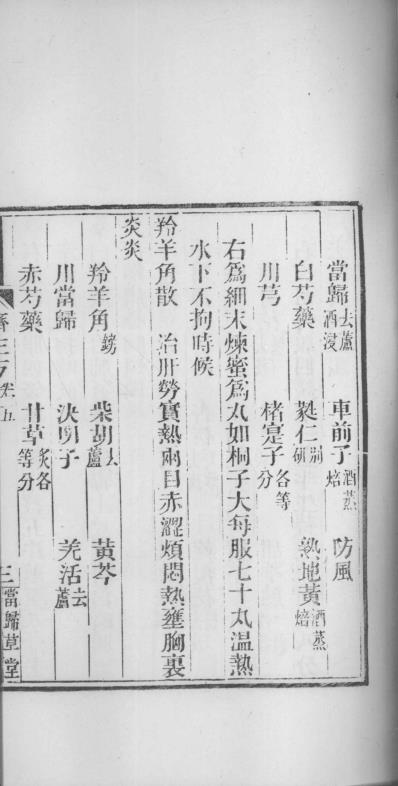 當歸去蘆酒浸 車前子酒蒸焙 防風
白芍藥 蕤仁別研 熟地黃酒蒸焙
川芎 楮寔子各等分
右爲細末煉蜜爲丸如桐子大每服七十丸溫熱
水下不拘時候
羚羊角散 治肝勞實熱兩目赤澀煩悶熱壅胸裏
炎炎
羚羊角鎊 柴胡去蘆 黃芩
川當歸 決明子 羌活去蘆
赤芍藥 甘草炙各等分
卷五 三 當歸草堂